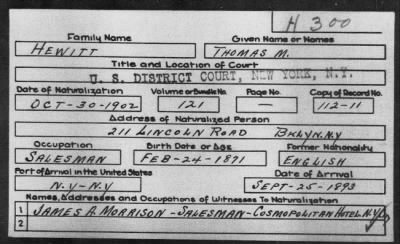 H 300
Family Name Given Name or Names
HEWITT THOMAS M.
Title and Location of Court
U. S. DISTRICT COURT, NEW YORK, N.Y.
Date of Naturalization Volume or Bundle No. Page No. Copy of Record No.
OCT-30-1902 121 — 112-11
Address of Naturalized Person
211 LINCOLN ROAD BKLYN.N.Y
Occupation Birth Date or Age Former Nationality
SALESMAN FEB-24-1871 ENGLISH
Port of Arrival in the United States Date of Arrival
N.Y-N.Y SEPT-25-1893
Names, Addresses and Occupations of Witnesses To Naturalization
1 JAMES A. MORRISON -SALESMAN-COSMOPOLITAN HOTEL.N.Y.
2